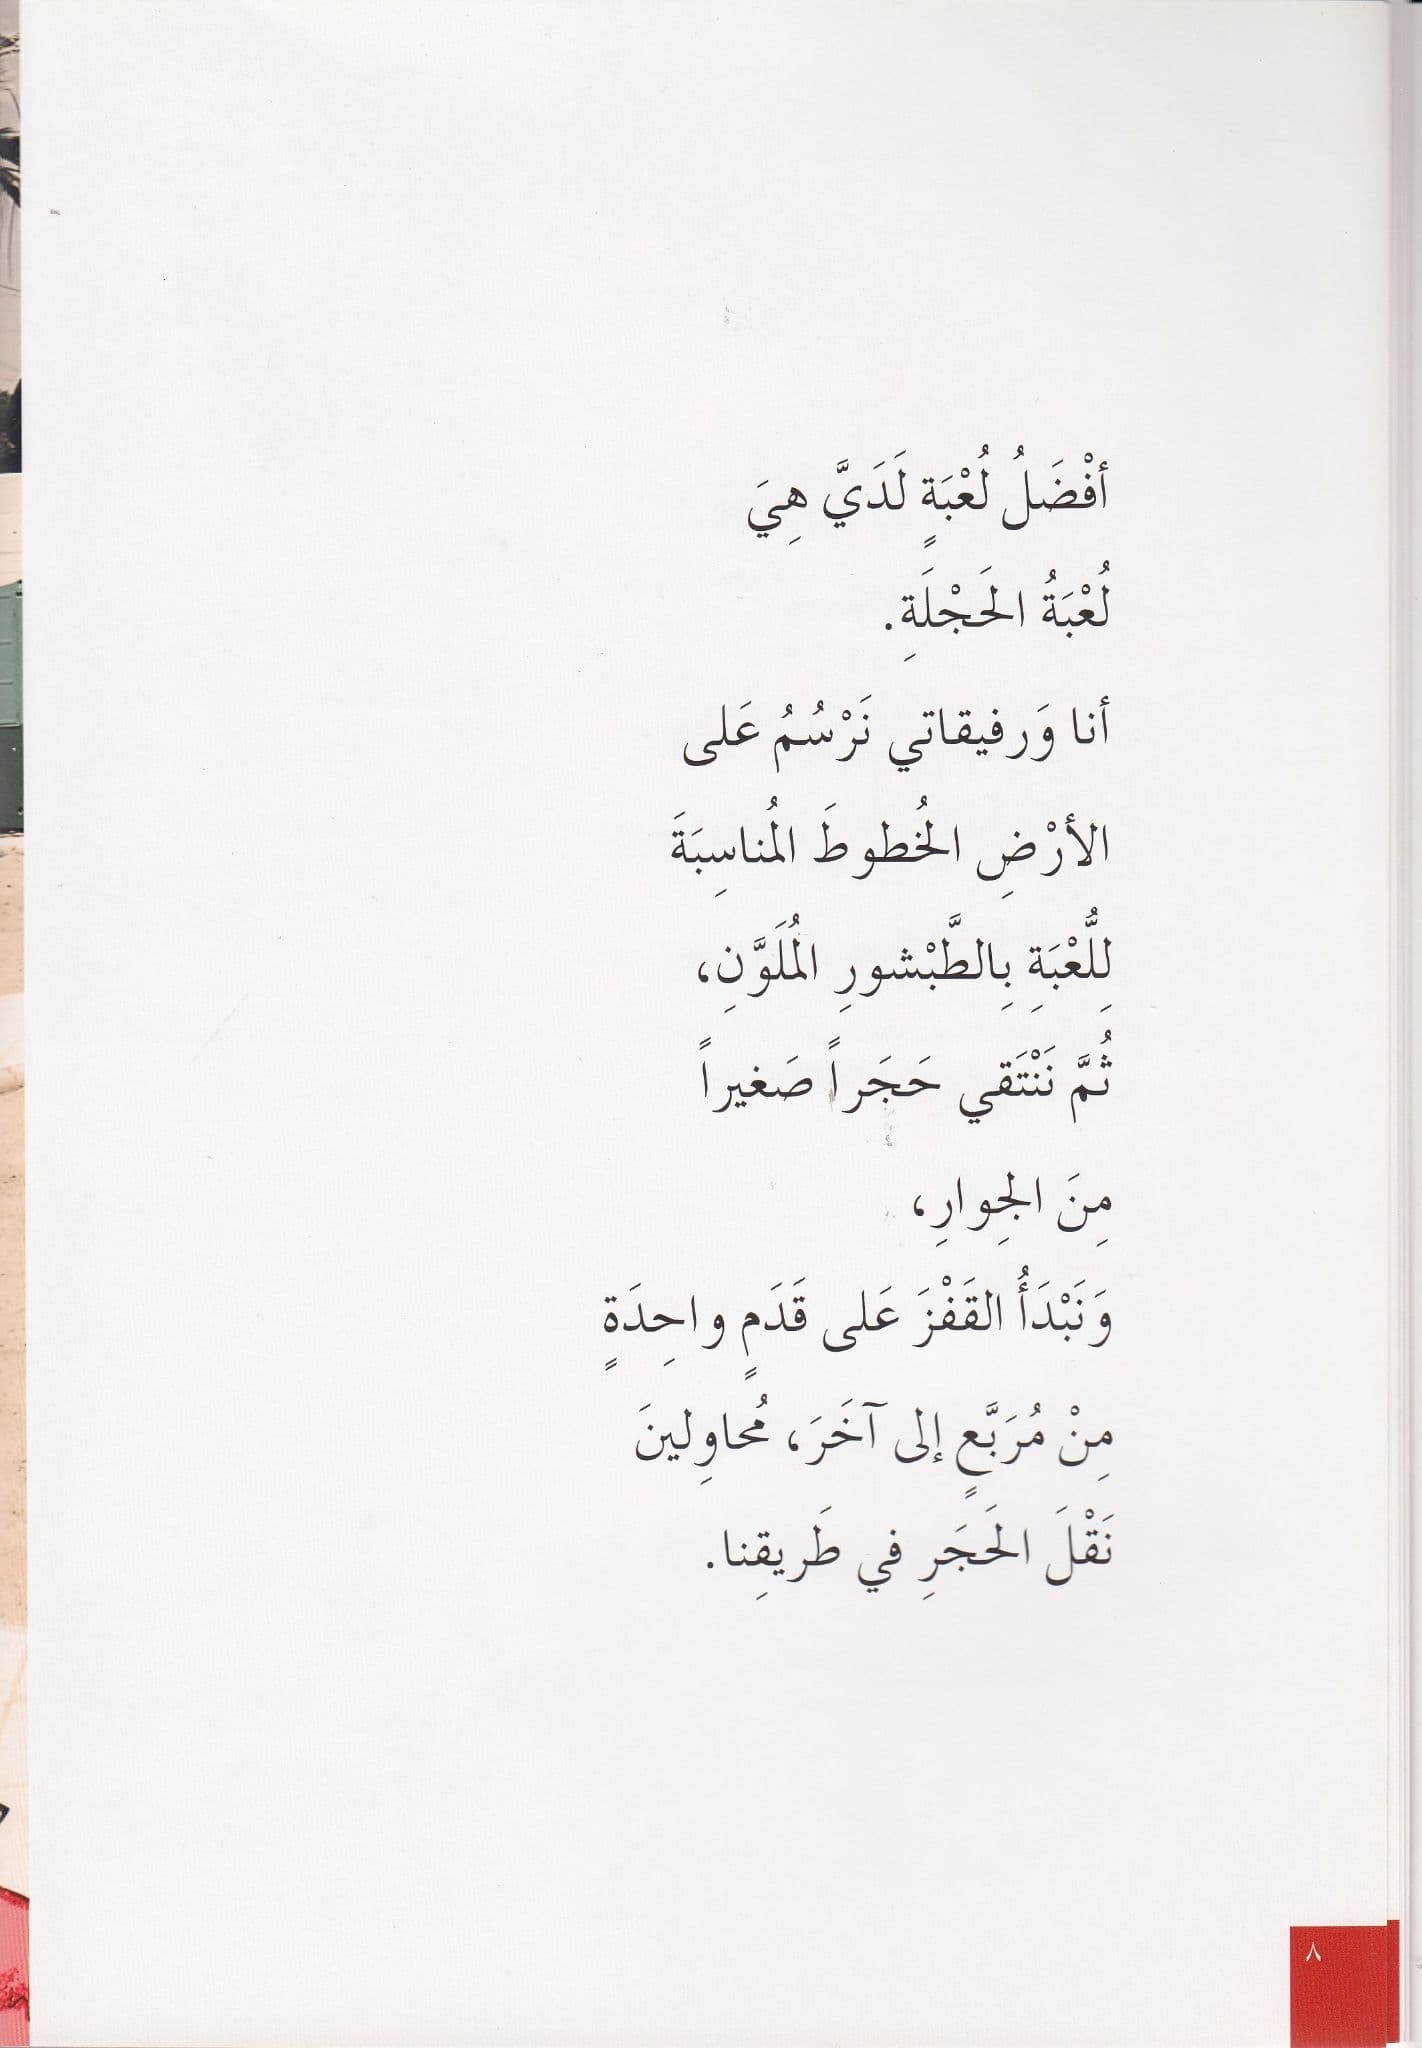 أفْضَلُ لُعْبَةٍ لَدَيَّ هِيَ
لُعْبَةُ الحَجْلَةِ.
أنا وَرفيقاتي نَرْسُمُ عَلى
الأرْضِ الخُطوطَ المُناسِبَةَ
لِلُّعْبَةِ بِالطَّبْشورِ المُلَوَّنِ،
ثُمَّ نَنْتَقي حَجَراً صَغيراً
مِنَ الجِوارِ،
وَنَبْدَأُ القَفْزَ عَلى قَدَمٍ واحِدَةٍ
مِنْ مُرَبَّعٍ إلى آخَرَ، مُحاوِلينَ
نَقْلَ الحَجَرِ في طَريقِنا.
٨